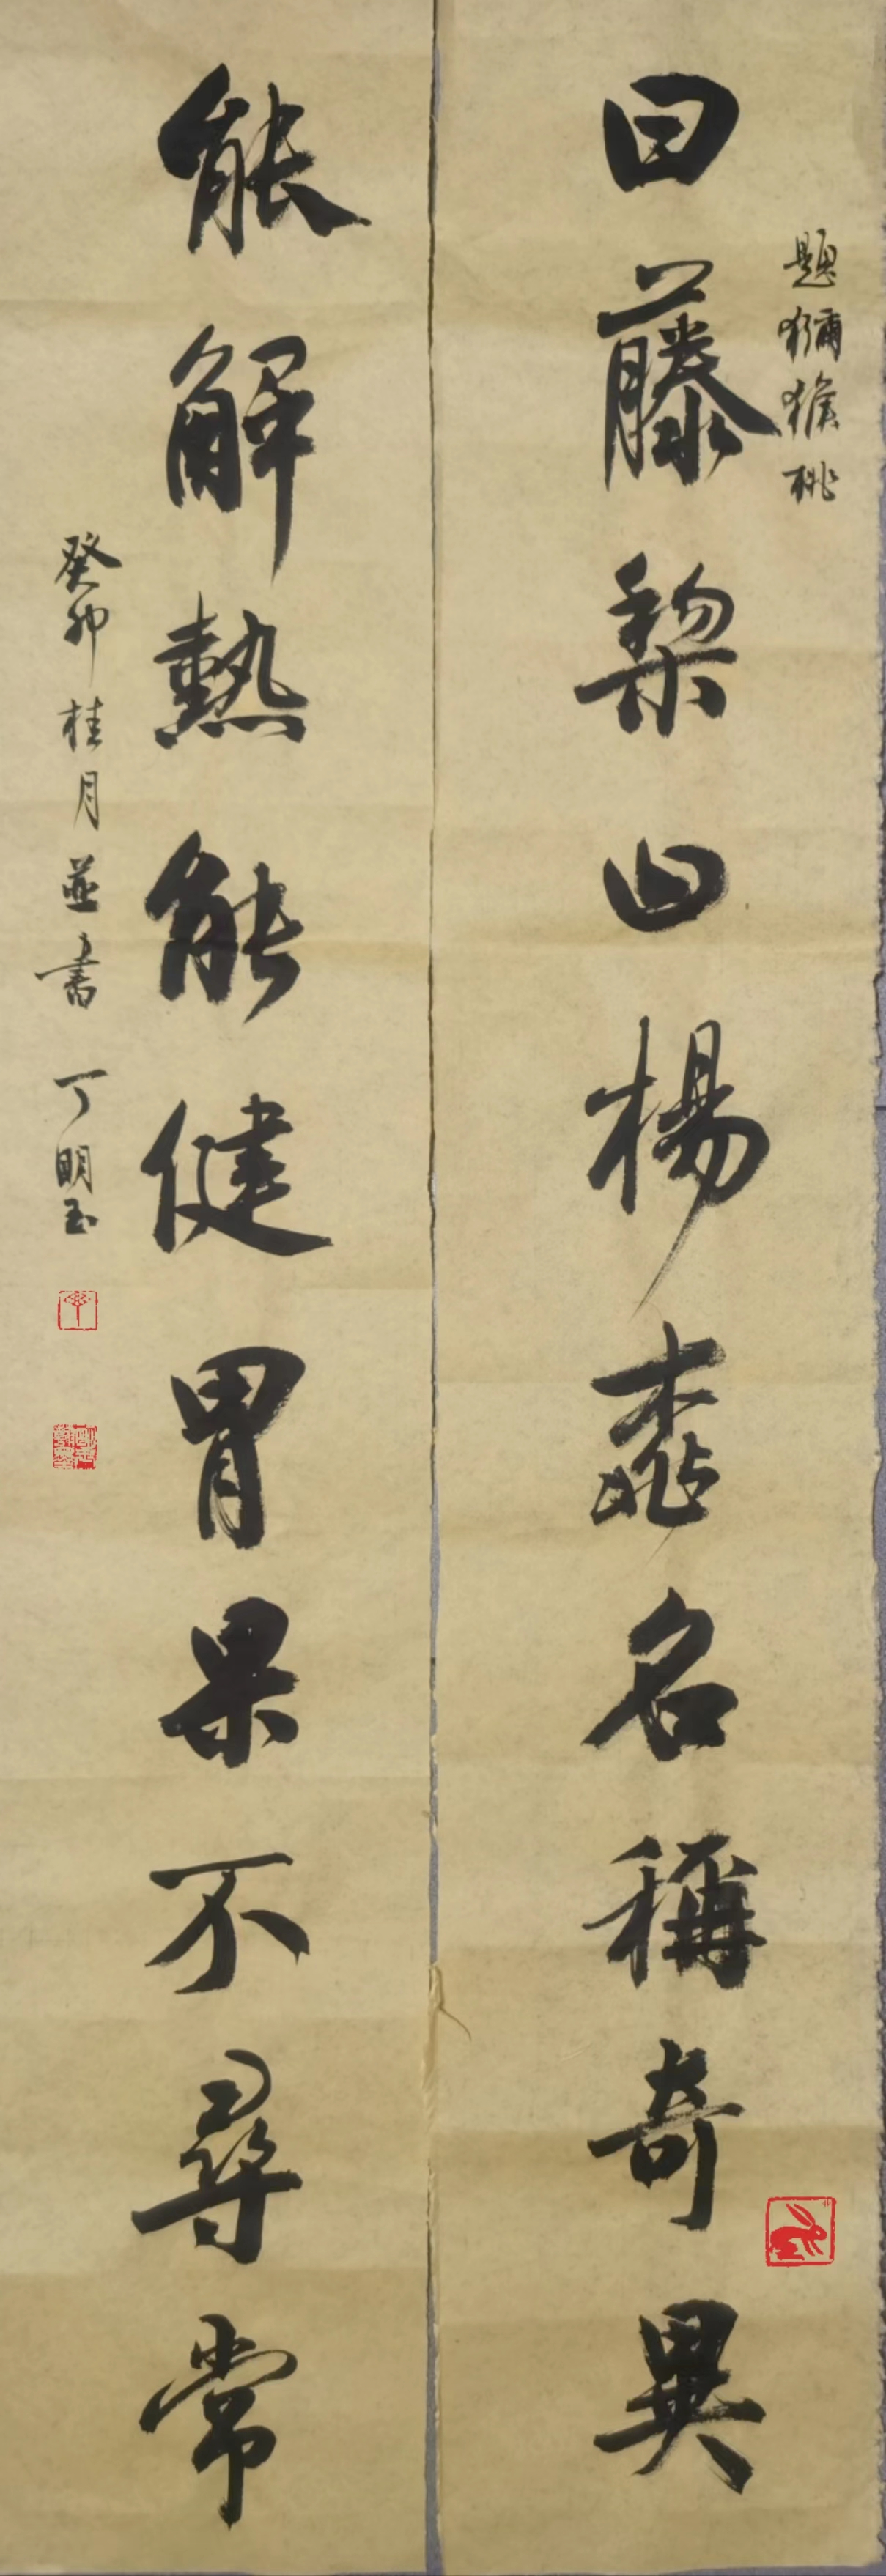 題獼猴桃
曰藤梨曰楊桃名稱奇異
能解熱能健胃果不尋常
癸卯桂月並書 丁明玉